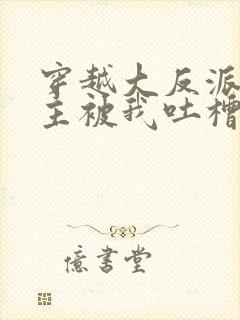 穿越大反派
主被我吐槽
億書堂